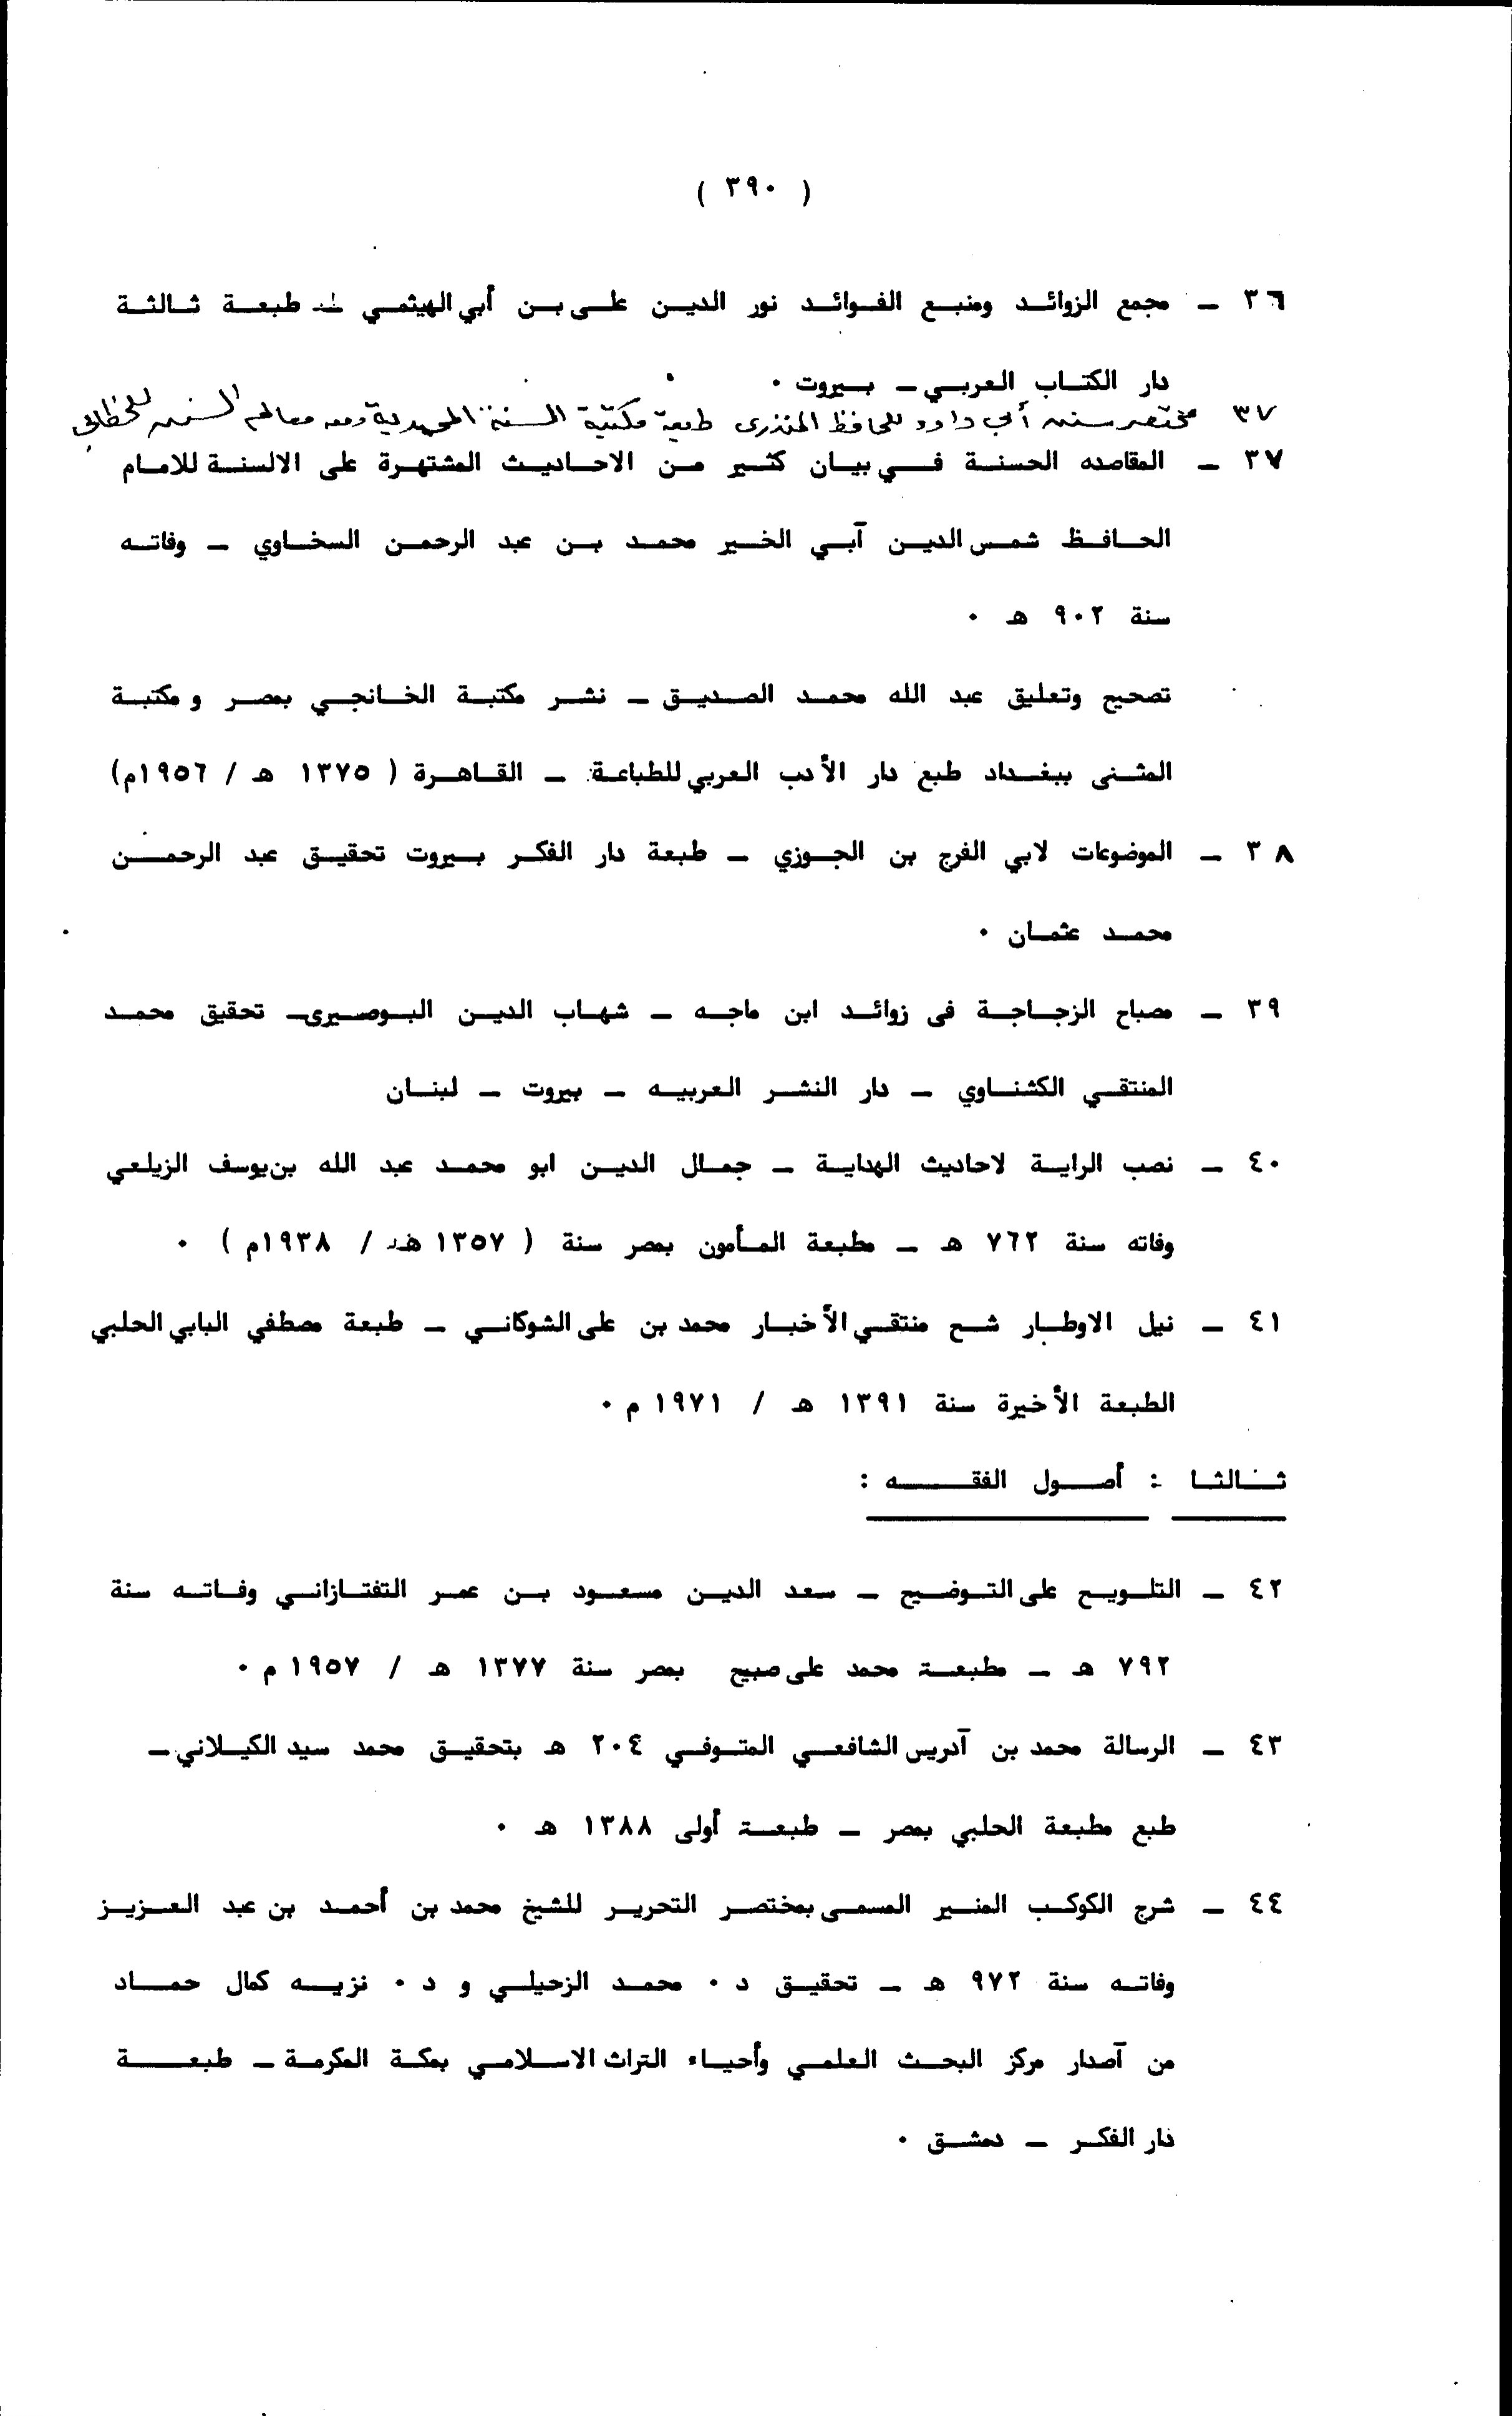 ( ٣٩٠ )
٣٦ – مجمع الزوائد ومنبع الفوائد نور الدين على بن أبي الهيثمي – طبعة ثالثة
دار الكتاب العربي – بيروت .
٣٧ مختصر سنن أبي داود للحافظ المنذرى طبعة مكتبة السنة المحمدية ومعه معالم السنن للخطابي
٣٧ – المقاصده الحسنة في بيان كثير من الاحاديث المشتهرة على الالسنة للامام
الحافظ شمس الدين آبي الخير محمد بن عبد الرحمن السخاوي – وفاته
سنة ٩٠٢ هـ .
تصحيح وتعليق عبد الله محمد الصديق – نشر مكتبة الخانجي بمصر و مكتبة
المثنى ببغداد طبع دار الأدب العربي للطباعة – القاهرة ( ١٣٧٥ هـ / ١٩٥٦م)
٣٨ – الموضوعات لابي الفرج بن الجوزي – طبعة دار الفكر بيروت تحقيق عبد الرحمن
محمد عثمان .
٣٩ – مصباح الزجاجة فى زوائد ابن ماجه – شهاب الدين البوصيرى – تحقيق محمد
المنتقي الكشناوي – دار النشر العربيه – بيروت – لبنان
٤٠ – نصب الراية لاحاديث الهداية – جمال الدين ابو محمد عبد الله بن يوسف الزيلعي
وفاته سنة ٧٦٢ هـ – مطبعة المأمون بمصر سنة ( ١٣٥٧ هـ / ١٩٣٨م ) .
٤١ – نيل الاوطار شح منتقي الأخبار محمد بن على الشوكاني – طبعة مصطفي البابي الحلبي
الطبعة الأخيرة سنة ١٣٩١ هـ / ١٩٧١ م .
ثالثا : أصول الفقه :
٤٢ – التلويح على التوضيح – سعد الدين مسعود بن عمر التفتازاني وفاته سنة
٧٩٢ هـ – مطبعة محمد على صبيح بمصر سنة ١٣٧٧ هـ / ١٩٥٧ م .
٤٣ – الرسالة محمد بن آدريس الشافعي المتوفي ٢٠٤ هـ بتحقيق محمد سيد الكيلاني –
طبع مطبعة الحلبي بمصر – طبعة أولى ١٣٨٨ هـ .
٤٤ – شرح الكوكب المنير المسمى بمختصر التحرير للشيخ محمد بن أحمد بن عبد العزيز
وفاته سنة ٩٧٢ هـ – تحقيق د . محمد الزحيلي و د . نزيه كمال حماد
من آصدار مركز البحث العلمي وأحياء التراث الاسلامي بمكة المكرمة – طبعة
دار الفكر – دمشق .